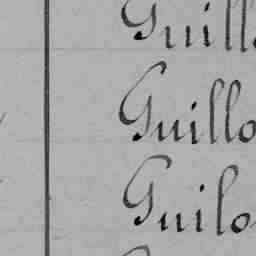 Guill
Guillo
Guilo